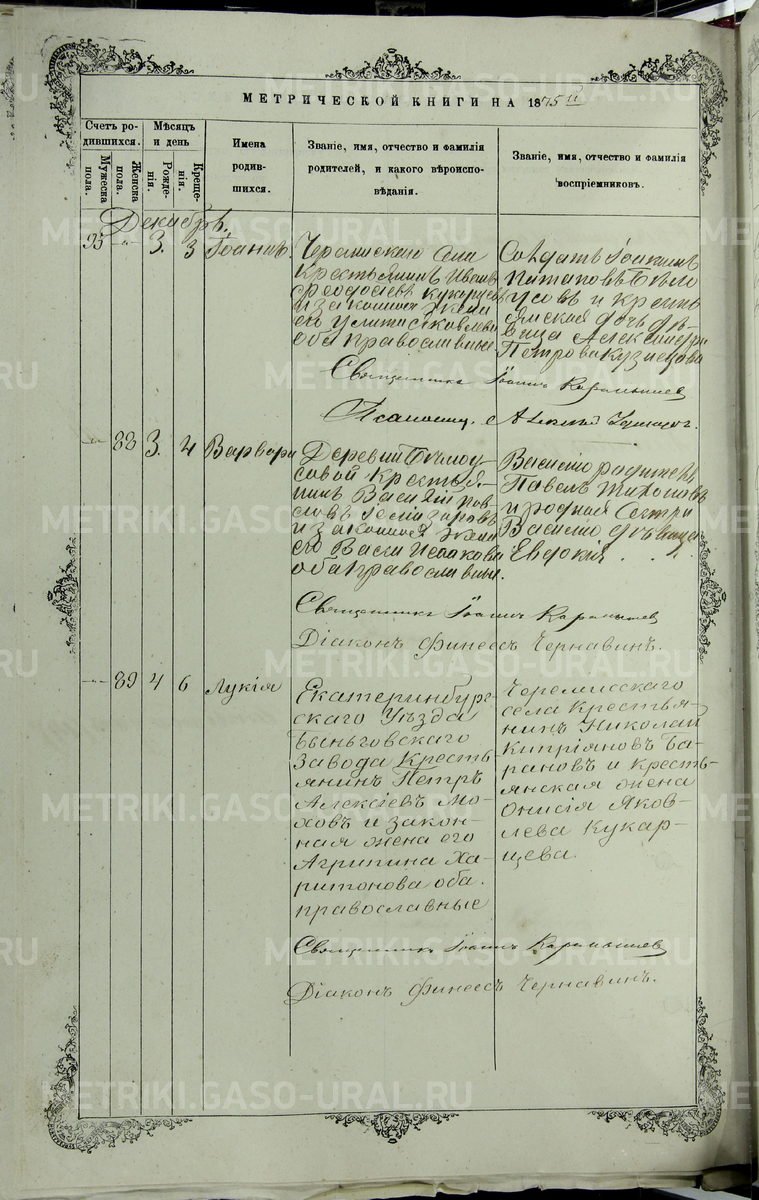 МЕТРИЧЕСКОЙ КНИГИ НА 1875 й
Счетъ ро-
дившихся.
Мужеска
пола.
Женска
пола.
Мѣсяцъ
и день
Рожде-
нія.
Креще-
нія.
Имена
родив-
шихся.
Званіе, имя, отчество и фамилія
родителей, и какого вѣроиспо-
вѣданія.
Званіе, имя, отчество и фамилія
воспріемниковъ.
Декабрь.
95 -"- 3. 3 Іоаннъ.
Крестьянинъ Иванъ
и законная жена
его
оба православные
Солдатъ Іоакимъ
Потаповъ Бѣло
усовъ и кресть
янская дочь дѣ-
вица Александра
Петрова Кузнецова
Священникъ Іоаннъ
-"- 88 3. 4 Варвара
Деревни Бѣлоу-
совой крестья-
нинъ
и законная жена
его Исаакова
оба православные.
Павелъ Тихоновъ
и родная сестра
дѣвица
Евдокія . . .
Священникъ Іоаннъ
Діаконъ Финеесъ Чернавинъ.
-"- 89 4 6 Лукія
Екатеринбург-
скаго Уѣзда
Быньговскаго
Завода Кресть
янинъ Петръ
Алексіевъ Мо-
ховъ и закон-
ная жена его
Агрипина Ха-
ритонова оба.
православные
Черемисскаго
села Крестья-
нинъ Николай
Кипріяновъ Ба-
рановъ и кресть-
янская жена
Онисія Яков-
лева Кукар-
цева.
Священникъ Іоаннъ
Діаконъ Финеесъ Чернавинъ.
METRIKI.GASO-URAL.RU